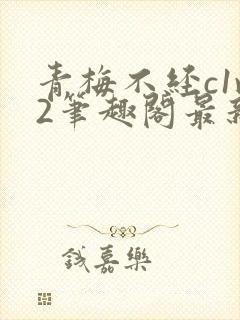 青梅不经c1v
2笔趣阁最新
钱嘉乐